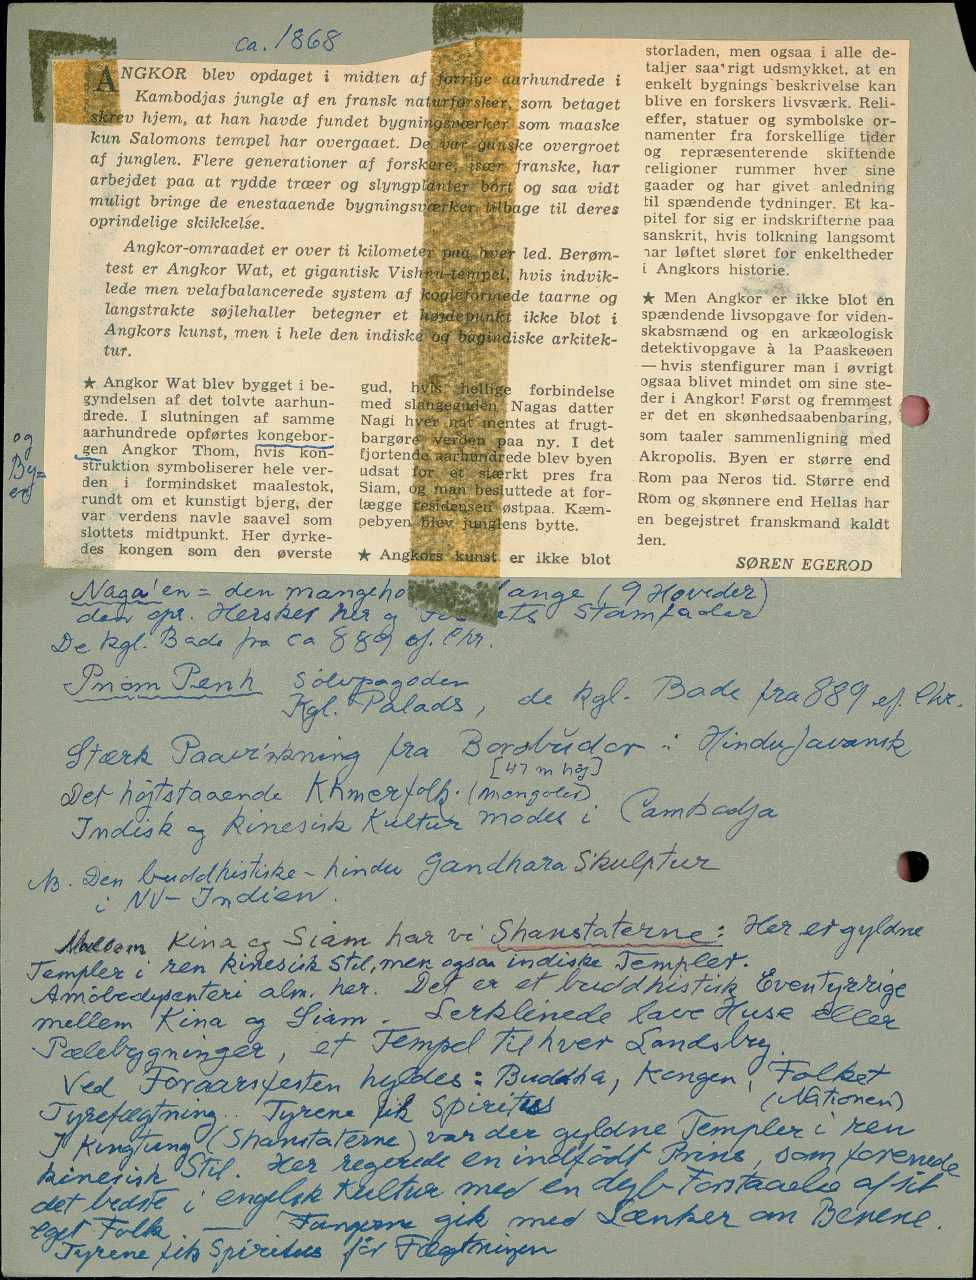 ca. 1868
ANGKOR blev opdaget i midten af forrige aarhundrede i
Kambodjas jungle af en fransk naturforsker, som betaget
skrev hjem, at han havde fundet bygningsværker som maaske
kun Salomons tempel har overgaaet. De var ganske overgroet
af junglen. Flere generationer af forskere, især franske, har
arbejdet paa at rydde træer og slyngplanter bort og saa vidt
muligt bringe de enestaaende bygningsværker tilbage til deres
oprindelige skikkelse.
Angkor-omraadet er over ti kilometer paa hver led. Berøm-
test er Angkor Wat, et gigantisk Vishnu-tempel, hvis indvik-
lede men velafbalancerede system af kogleformede taarne og
langstrakte søjlehaller betegner et højdepunkt ikke blot i
Angkors kunst, men i hele den indiske og bagindiske arkitek-
tur.
★ Angkor Wat blev bygget i be-
gyndelsen af det tolvte aarhun-
drede. I slutningen af samme
aarhundrede opførtes kongebor-
gen Angkor Thom, hvis kon-
struktion symboliserer hele ver-
den i formindsket maalestok,
rundt om et kunstigt bjerg, der
var verdens navle saavel som
slottets midtpunkt. Her dyrke-
des kongen som den øverste
og
By=
en
gud, hvis hellige forbindelse
med slangeguden Nagas datter
Nagi hver nat mentes at frugt-
bargøre verden paa ny. I det
fjortende aarhundrede blev byen
udsat for et stærkt pres fra
Siam, og man besluttede at for-
lægge residensen østpaa. Kæm-
pebyen blev junglens bytte.
★ Angkors kunst er ikke blot
storladen, men ogsaa i alle de-
taljer saa rigt udsmykket, at en
enkelt bygnings beskrivelse kan
blive en forskers livsværk. Reli-
effer, statuer og symbolske or-
namenter fra forskellige tider
og repræsenterende skiftende
religioner rummer hver sine
gaader og har givet anledning
til spændende tydninger. Et ka-
pitel for sig er indskrifterne paa
sanskrit, hvis tolkning langsomt
har løftet sløret for enkeltheder
i Angkors historie.
★ Men Angkor er ikke blot en
spændende livsopgave for viden-
skabsmænd og en arkæologisk
detektivopgave à la Paaskeøen
— hvis stenfigurer man i øvrigt
ogsaa blivet mindet om sine ste-
der i Angkor! Først og fremmest
er det en skønhedsaabenbaring,
som taaler sammenligning med
Akropolis. Byen er større end
Rom paa Neros tid. Større end
Rom og skønnere end Hellas har
en begejstret franskmand kaldt
den.
SØREN EGEROD
Naga'en = den mangeho lange (9 Hoveder)
den opr. Hersker her og Stamfader
De kgl. Bade fra ca 889 ef. Chr.
Pnom Penh Sølvpagoden
Kgl. Palads, de kgl. Bade fra 889 ef. Chr.
Stærk Paavirkning fra Borobudor : Hindujavansk
[47 m høj]
Det højtstaaende Khmerfolk. (mongoler)
Indisk og kinesisk Kultur mødes i Cambodja
NB. Den buddhistiske - hindu Gandhara Skulptur
i NV-Indien.
Mellem Kina og Siam har vi Shanstaterne: Her er gyldne
Templer i ren kinesisk Stil, men ogsaa indiske Templer.
Amöbedysenteri alm. her. Det er et buddhistisk Eventyrrige
mellem Kina og Siam. Lerklinede lave Huse eller
Pælebygninger, et Tempel til hver Landsby.
Ved Foraarsfesten hyldes: Buddha, Kongen, Folket
(Nationen)
Tyrefægtning. Tyrene fik Spiritus
I Kingtung (Shanstaterne) var der gyldne Templer i ren
kinesisk Stil. Her regerede en indfødt Prins, som forenede
det bedste i engelsk Kultur med en dyb Forstaaelse af sit
eget Folk. — Fangerne gik med Lænker om Benene.
Tyrene fik Spiritus før Fægtningen